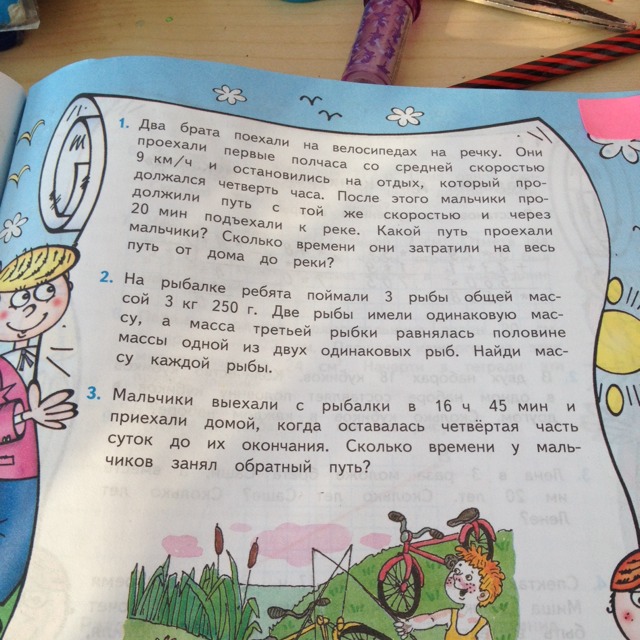 1. Два брата поехали на велосипедах на речку. Они
проехали первые полчаса со средней скоростью
9 км/ч и остановились на отдых, который про-
должался четверть часа. После этого мальчики про-
должили путь с той же скоростью и через
20 мин подъехали к реке. Какой путь проехали
мальчики? Сколько времени они затратили на весь
путь от дома до реки?
2. На рыбалке ребята поймали 3 рыбы общей мас-
сой 3 кг 250 г. Две рыбы имели одинаковую мас-
су, а масса третьей рыбки равнялась половине
массы одной из двух одинаковых рыб. Найди мас-
су каждой рыбы.
3. Мальчики выехали с рыбалки в 16 ч 45 мин и
приехали домой, когда оставалась четвёртая часть
суток до их окончания. Сколько времени у маль-
чиков занял обратный путь?